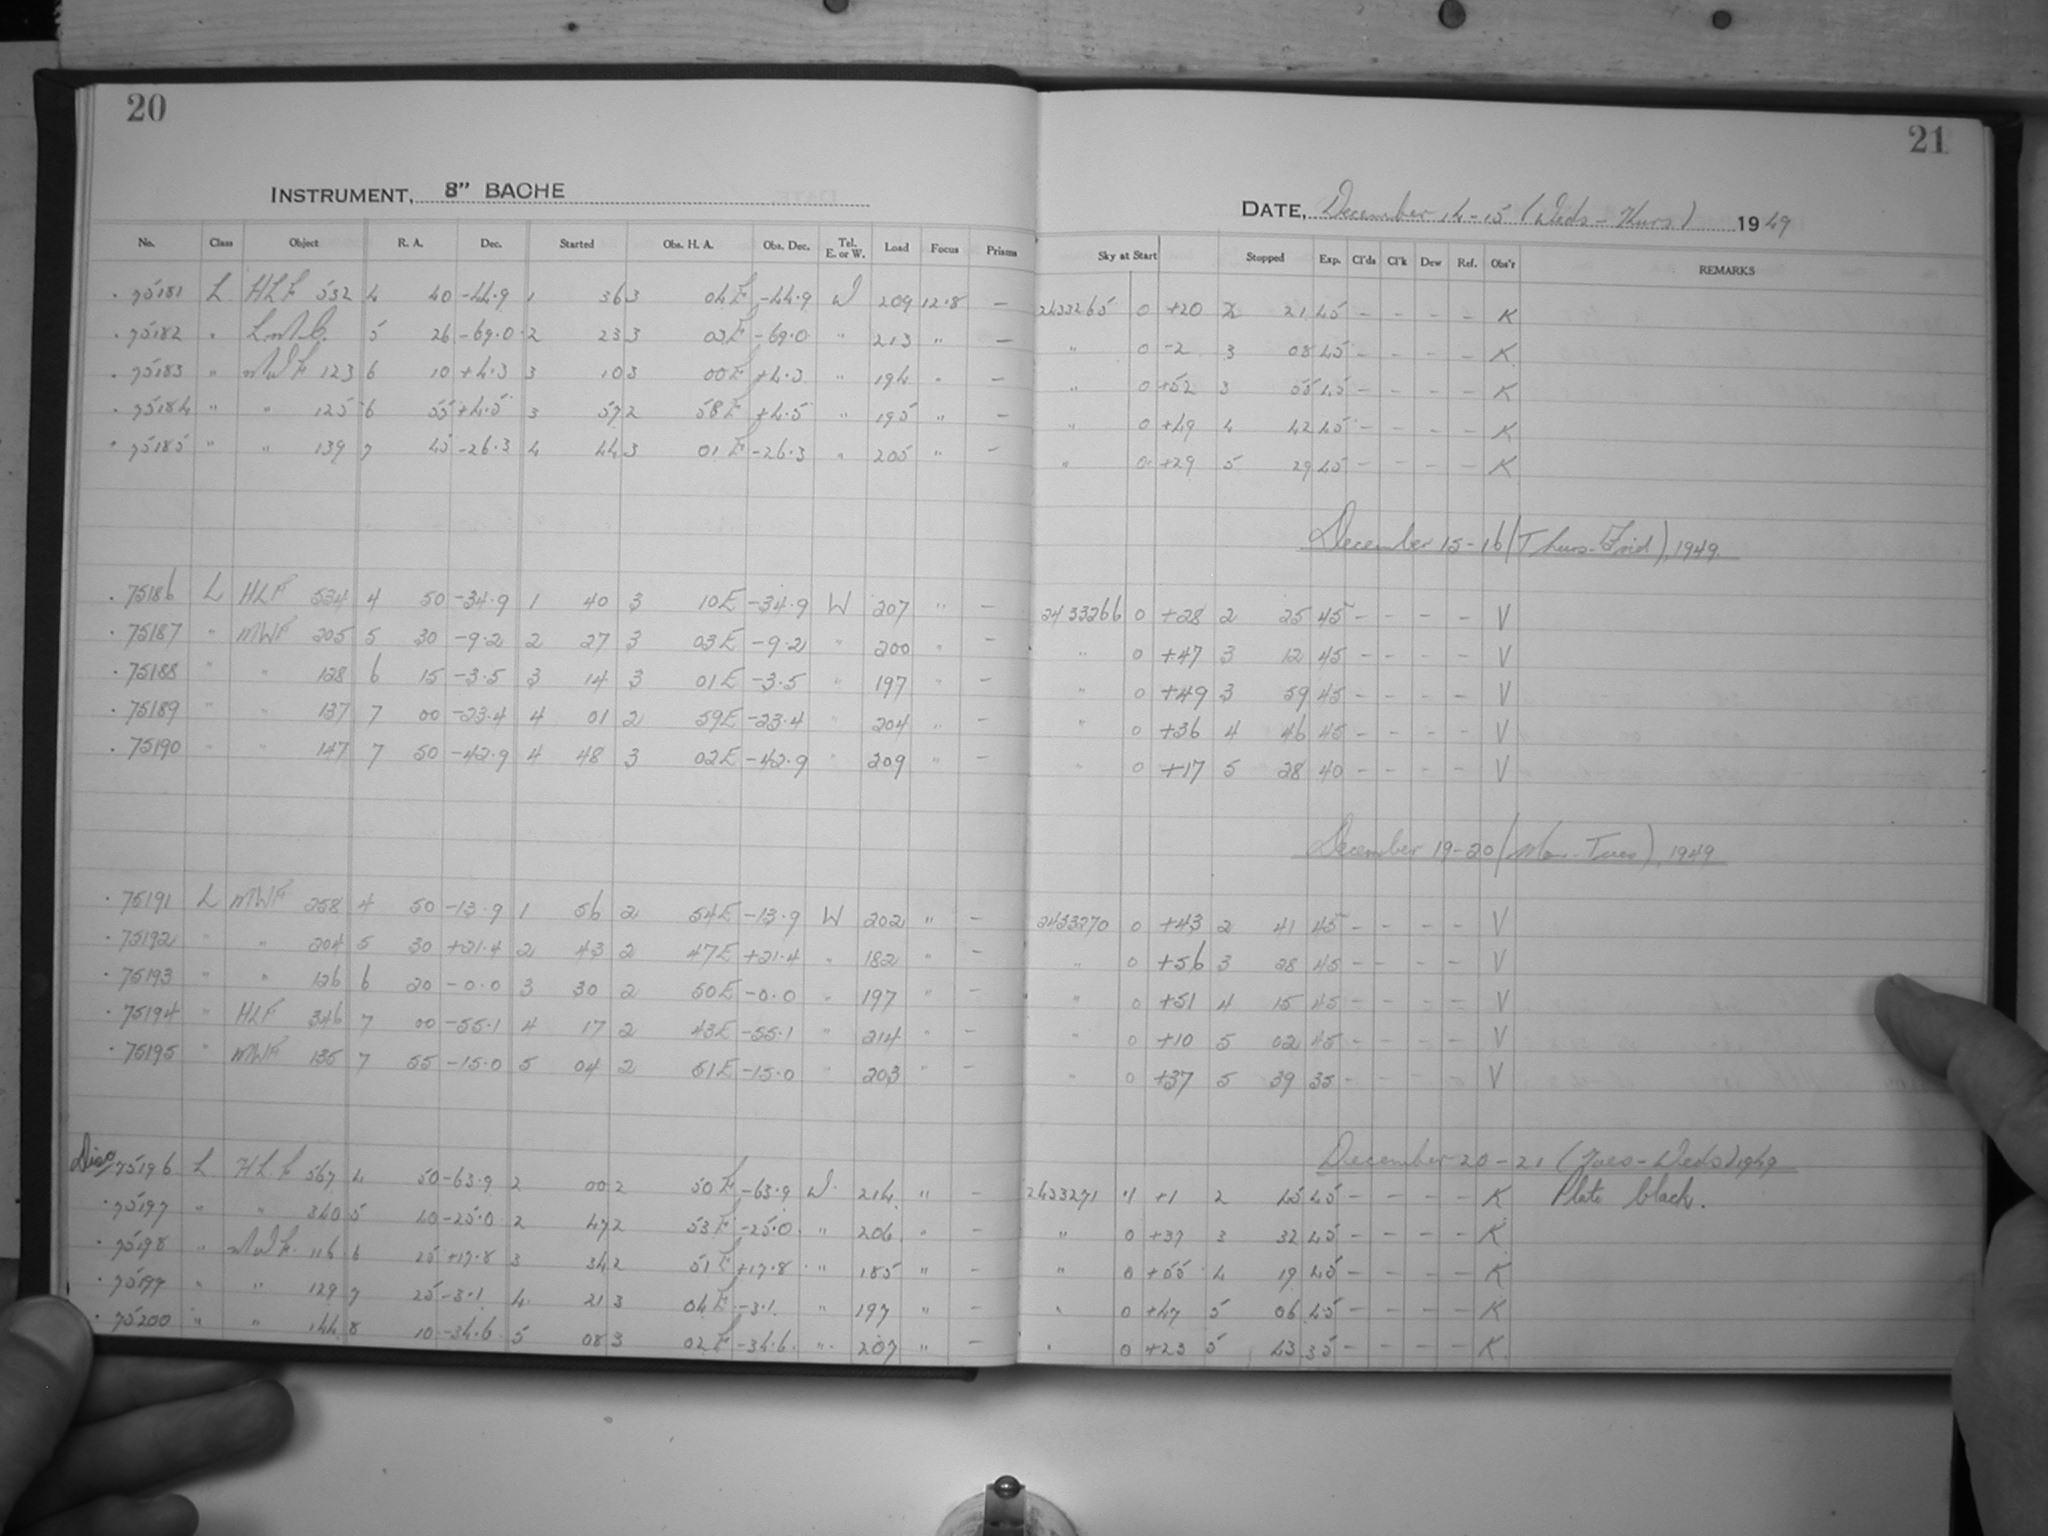 20
INSTRUMENT, 8" BACHE
No. Class Object R. A. Dec. Started Obs. H. A. Obs. Dec. Tel. E. or W. Load Focus Prisms
75181 L HLF 532 4 40 -44.9 1 36 3 04E -44.9 W 209 12.8 —
75182 " L.M.C. 5 26 -69.0 2 23 3 03E -69.0 " 213 " —
75183 " MWF 123 6 10 +4.3 3 10 3 00E +4.3 " 194 " —
75184 " " 125 6 55 +4.5 3 57 2 58E +4.5 " 195 " —
75185 " " 139 7 45 -26.3 4 44 3 01E -26.3 " 205 " —
75186 L HLF 534 4 50 -34.9 1 40 3 10E -34.9 W 207 " —
75187 " MWF 205 5 30 -9.2 2 27 3 03E -9.2 " 200 " —
75188 " " 128 6 15 -3.5 3 14 3 01E -3.5 " 197 " —
75189 " " 137 7 00 -23.4 4 01 2 59E -23.4 " 204 " —
75190 " " 147 7 50 -42.9 4 48 3 02E -42.9 " 209 " —
75191 L MWF 258 4 50 -13.9 1 56 2 54E -13.9 W 202 " —
75192 " " 204 5 30 +21.4 2 43 2 47E +21.4 " 182 " —
75193 " " 126 6 20 -0.0 3 30 2 50E -0.0 " 197 " —
75194 " HLF 346 7 00 -55.1 4 17 2 43E -55.1 " 214 " —
75195 " MWF 135 7 55 -15.0 5 04 2 51E -15.0 " 203 " —
Disc 75196 L HLF 567 4 50 -63.9 2 00 2 50E -63.9 W 214 " —
75197 " " 340 5 40 -25.0 2 47 2 53E -25.0 " 206 " —
75198 " MWF 116 6 25 +17.8 3 34 2 51E +17.8 " 185 " —
75199 " " 129 7 25 -3.1 4 21 3 04E -3.1 " 197 " —
75200 " " 144 8 10 -34.6 5 08 3 02E -34.6 " 207 " —
21
DATE, December 14-15 (Weds-Thurs) 1949
Sky at Start Stopped Exp. Cl'ds Cl'k Dew Ref. Obs'r REMARKS
2433265 0 +20 2 21 45 – – – – K
" 0 -2 3 08 45 – – – – K
" 0 +52 3 55 45 – – – – K
" 0 +49 4 42 45 – – – – K
" 0 +29 5 29 45 – – – – K
December 15-16 (Thurs-Frid), 1949
2433266 0 +28 2 25 45 – – – – V
" 0 +47 3 12 45 – – – – V
" 0 +49 3 59 45 – – – – V
" 0 +36 4 46 45 – – – – V
" 0 +17 5 28 40 – – – – V
December 19-20 (Mon-Tues), 1949
2433270 0 +43 2 41 45 – – – – V
" 0 +56 3 28 45 – – – – V
" 0 +51 4 15 45 – – – – V
" 0 +10 5 02 45 – – – – V
" 0 +37 5 39 35 – – – – V
December 20-21 (Tues-Weds) 1949
2433271 1 +1 2 45 45 – – – – K Plate black.
" 0 +37 3 32 45 – – – – K
" 0 +55 4 19 45 – – – – K
" 0 +47 5 06 45 – – – – K
" 0 +23 5 43 35 – – – – K